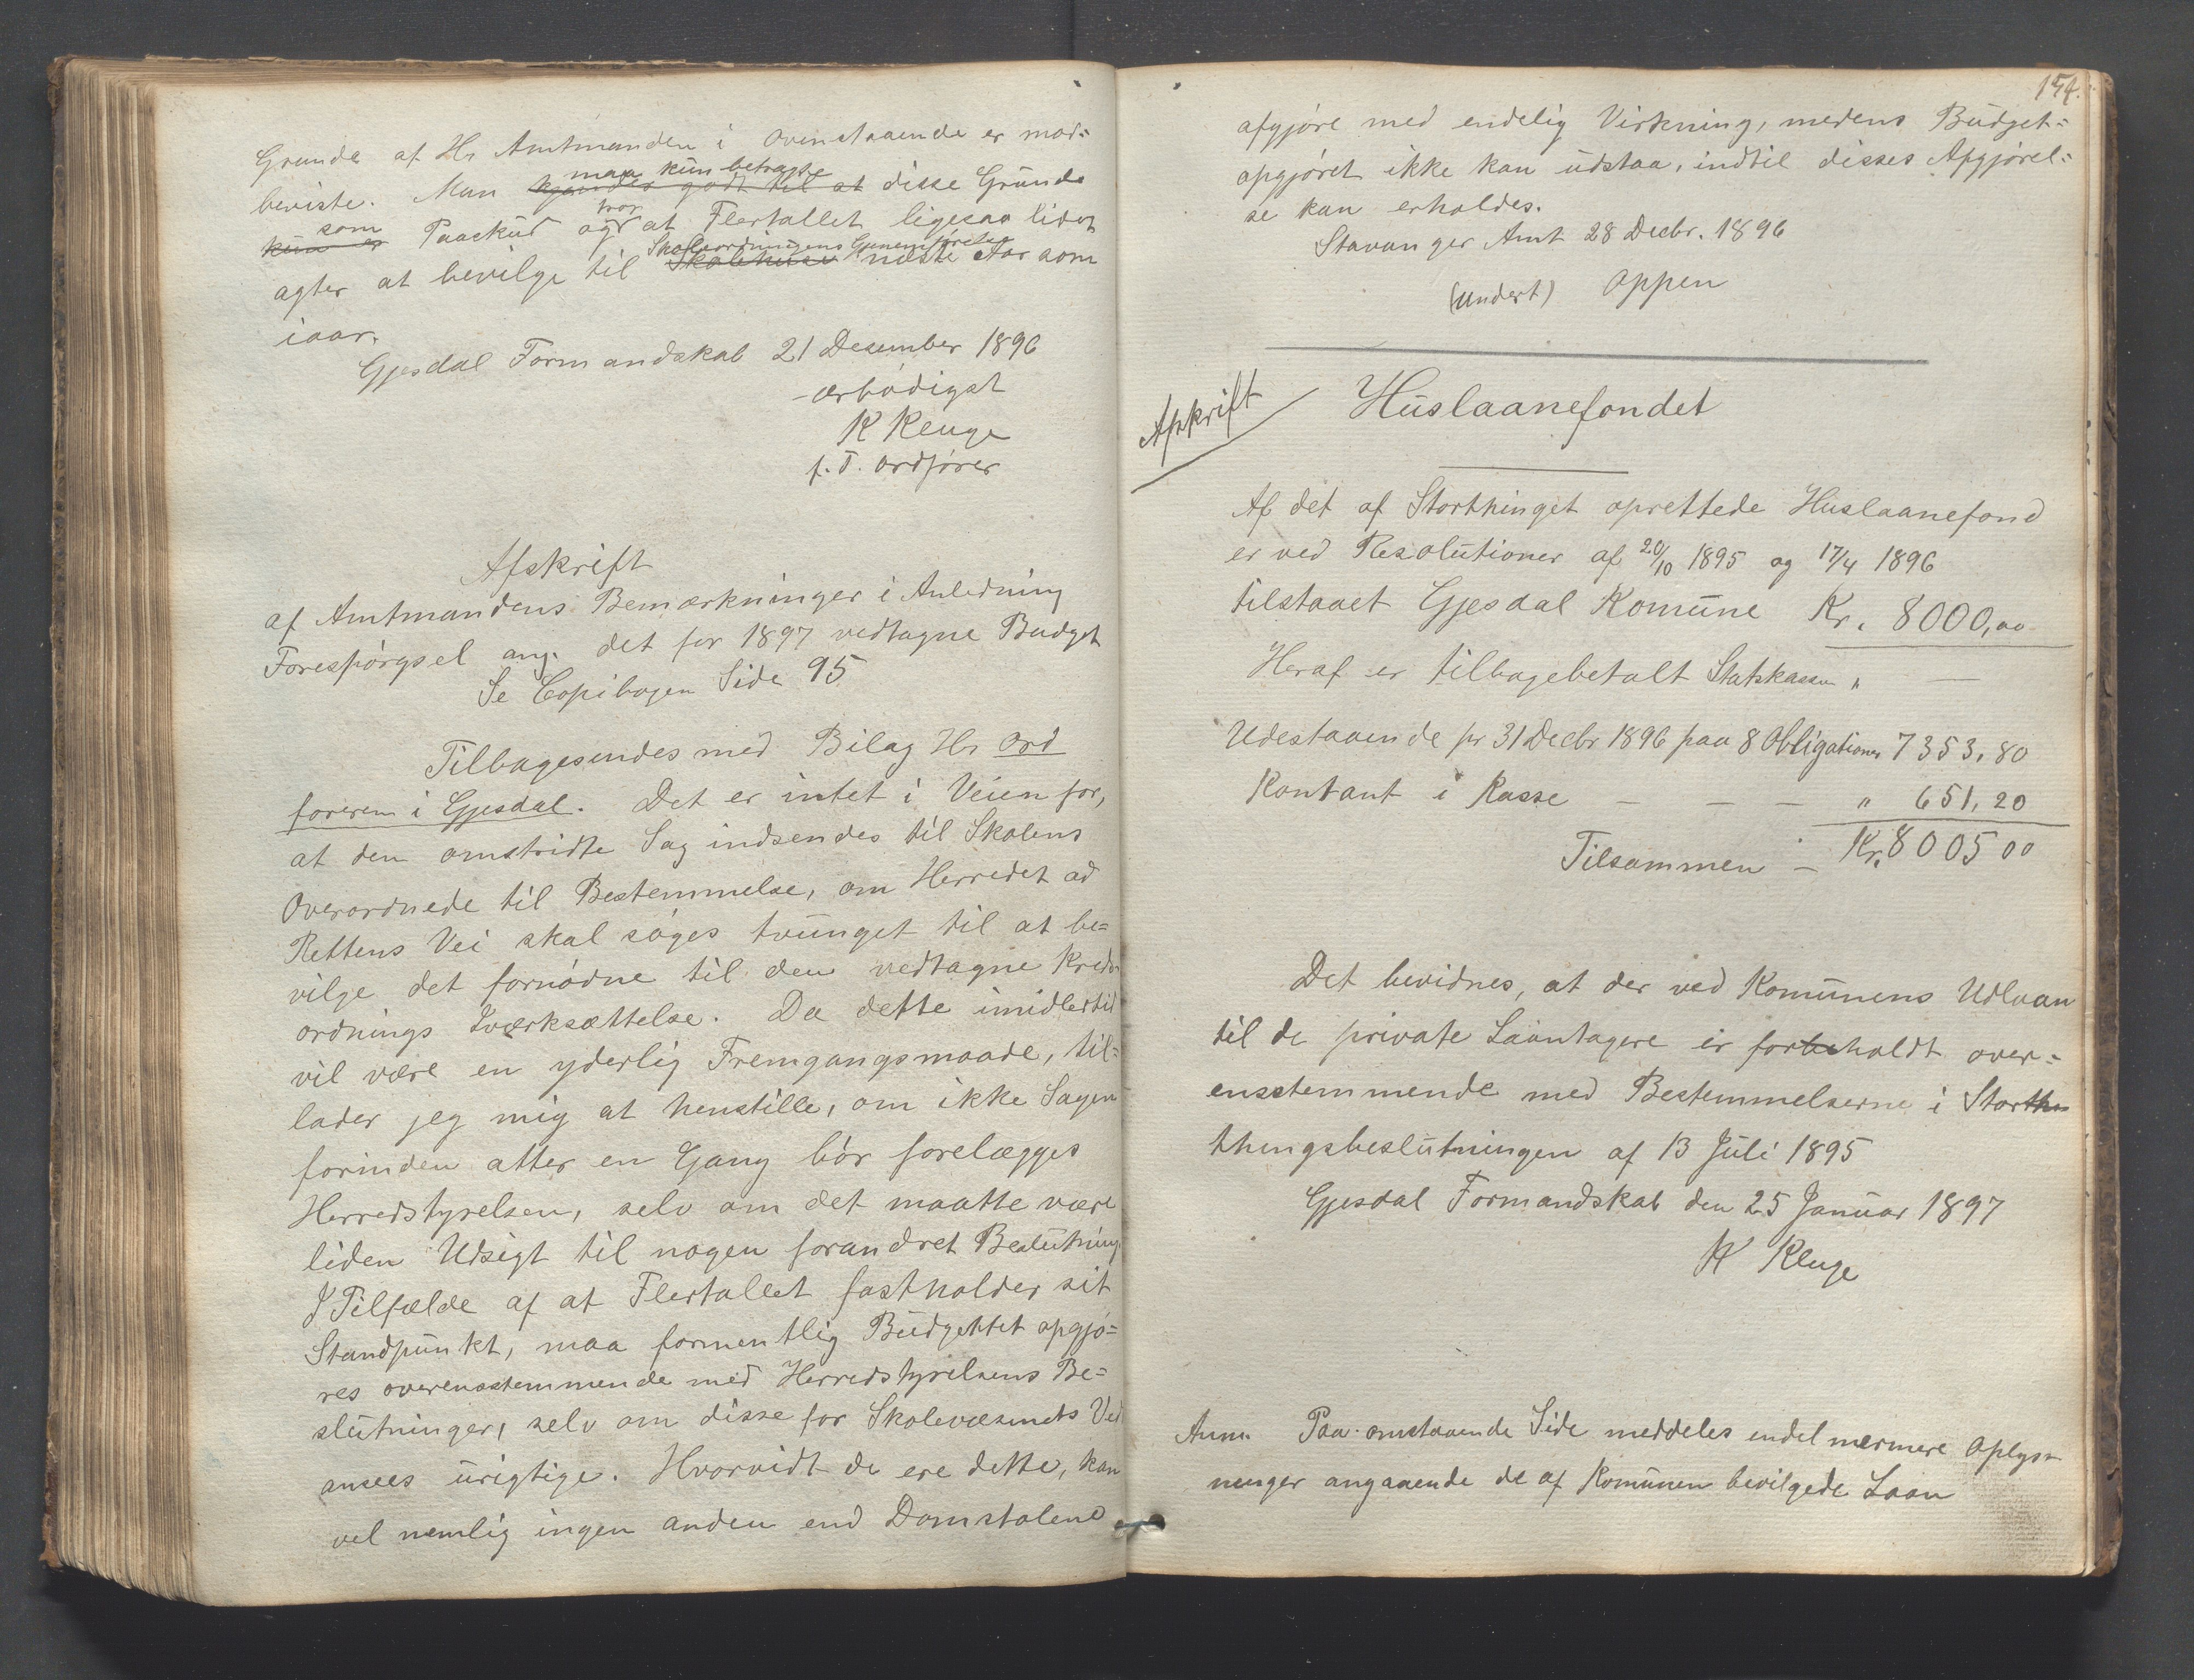 Grunde af Hr Amtmanden i ovenstaaende er mod-
beviste. Man kjender godt til at maa kun betragte disse Grunde
kun er som Paaskud og tror at Flertallet ligesaa lidet
agter at bevilge til Skolehuse Skoleordningens Gjenemførelse næste Aar som
iaar.
Gjesdal Formandskab 21 Desember 1896
ærbødigst
K Kluge
f. T. Ordfører
Afskrift
af Amtmandens Bemærkninger i Anledning
Forespørgsel ang. det for 1897 vedtagne Budget
Se Copibogen Side 95
Tilbagesendes med Bilag Hr Ord
føreren i Gjesdal. Det er intet i Veien for,
at den omstridte Sag indsendes til Skolens
Overordnede til Bestemmelse, om Herredet ad
Rettens Vei skal søges tvunget til at be=
vilge det fornødne til den vedtagne Kreds
ordnings Iværksættelse. Da dette imidlertid
vil være en yderlig Fremgangsmaade, til=
lader jeg mig at henstille, om ikke Sagen
forinden atter en Gang bør forelægges
Herredstyrelsen, selv om det maatte være
liden Udsigt til nogen forandret Beslutning.
I Tilfælde af at Flertallet fastholder sit
Standpunkt, maa formentlig Budgettet opgjø=
res overensstemmende med Herredstyrelsens Be=
slutninger, selv om disse for Skolevæsenets Ved
ansees urigtige. Hvorvidt de ere dette, kan
vel nemlig ingen anden end Domstolene
154.
afgjøre med endelig Virkning, medens Budget=
opgjøret ikke kan udstaa, indtil disses Afgjørel=
se kan erholdes.
Stavanger Amt 28 Decbr. 1896
(Undert) Oppen
Afskrift
Huslaanefondet
Af det af Storthinget oprettede Huslaanefond
er ved Resolutioner af 20/10 1895 og 17/4 1896
tilstaaet Gjesdal Komune Kr. 8000,00
Heraf er tilbagebetalt Statskassen " —
Udestaaende pr 31 Decbr 1896 paa 8 Obligationer 7353,80
Kontant i Kasse — — — " 651,20
Tilsammen — Kr. 8005 00
Det bevidnes, at der ved Komunens Udlaan
til de private Laantagere er forbeholdt over=
ensstemmende med Bestemmelserne i Storthn
thingsbeslutningen af 13 Juli 1895
Gjesdal Formandskab den 25 Januar 1897
K Kluge
Anm. Paa omstaaende Side meddeles endel nærmere Oplys=
ninger angaaende de af Komunen bevilgede Laan